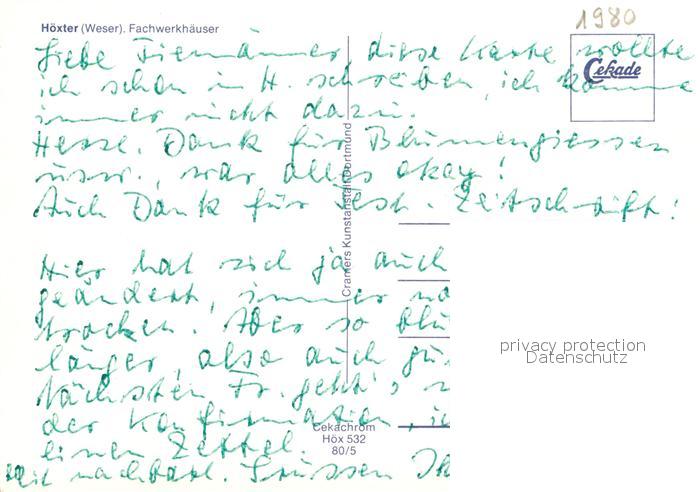 Höxter (Weser). Fachwerkhäuser
1980
Cekade
Liebe Tiemänner, diese Karte wollte
ich schon in H. schreiben, ich komme
immer nicht dazu.
Herzl. Dank für Blumengiessen
usw., war alles okay!
Auch Dank für Zeitschrift!
Hier hat sich ja auch
geändert, immer no
trocken. Aber so blü
länger, also auch gu
Nächsten Fr. geht's
der Konfirmation, ic
einen Zettel.
Mit nachbarl. Grüssen
Cramers Kunstanstalt Dortmund
Cekachrom
Höx 532
80/5
privacy protection
Datenschutz